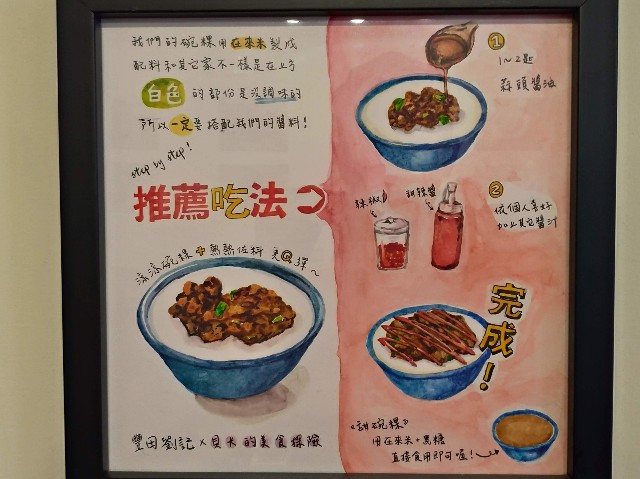 我們的碗粿用在來米製成
配料和其它家不一樣是在上方
白色的部份是沒調味的
所以一定要搭配我們的醬料!
step by step!
推薦吃法
涼涼碗粿+熱熱佐料 更Q彈~
豐田劉記x貝大的美食探險
①
1~2匙
蒜頭醬油
辣椒
甜辣醬
②
依個人喜好
加上其它醬汁
完成!
《甜碗粿》
用在來米+黑糖
直接食用即可喔!